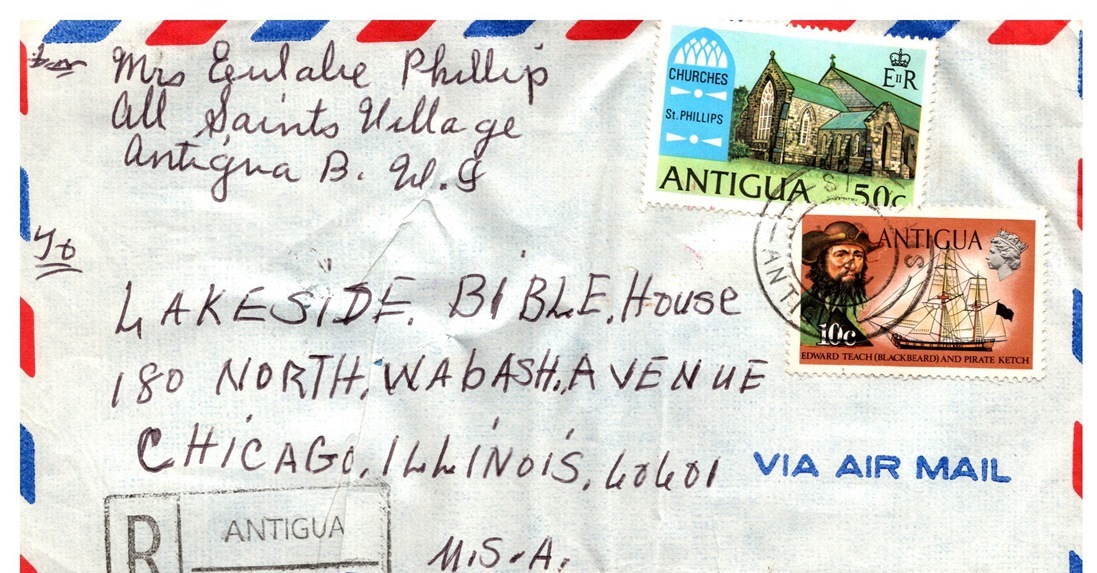 Mrs Eulalie Phillip
All Saints Village
Antigua B. W. I
To
LAKESIDE. BIBLE, House
180 NORTH, WAbASH, AVENUE
CHICAGO, ILLINOIS, 60601
U.S.A.
CHURCHES
St. PHILLIPS
E II R
ANTIGUA 50c
ANTIGUA
10c
EDWARD TEACH (BLACKBEARD) AND PIRATE KETCH
VIA AIR MAIL
R ANTIGUA